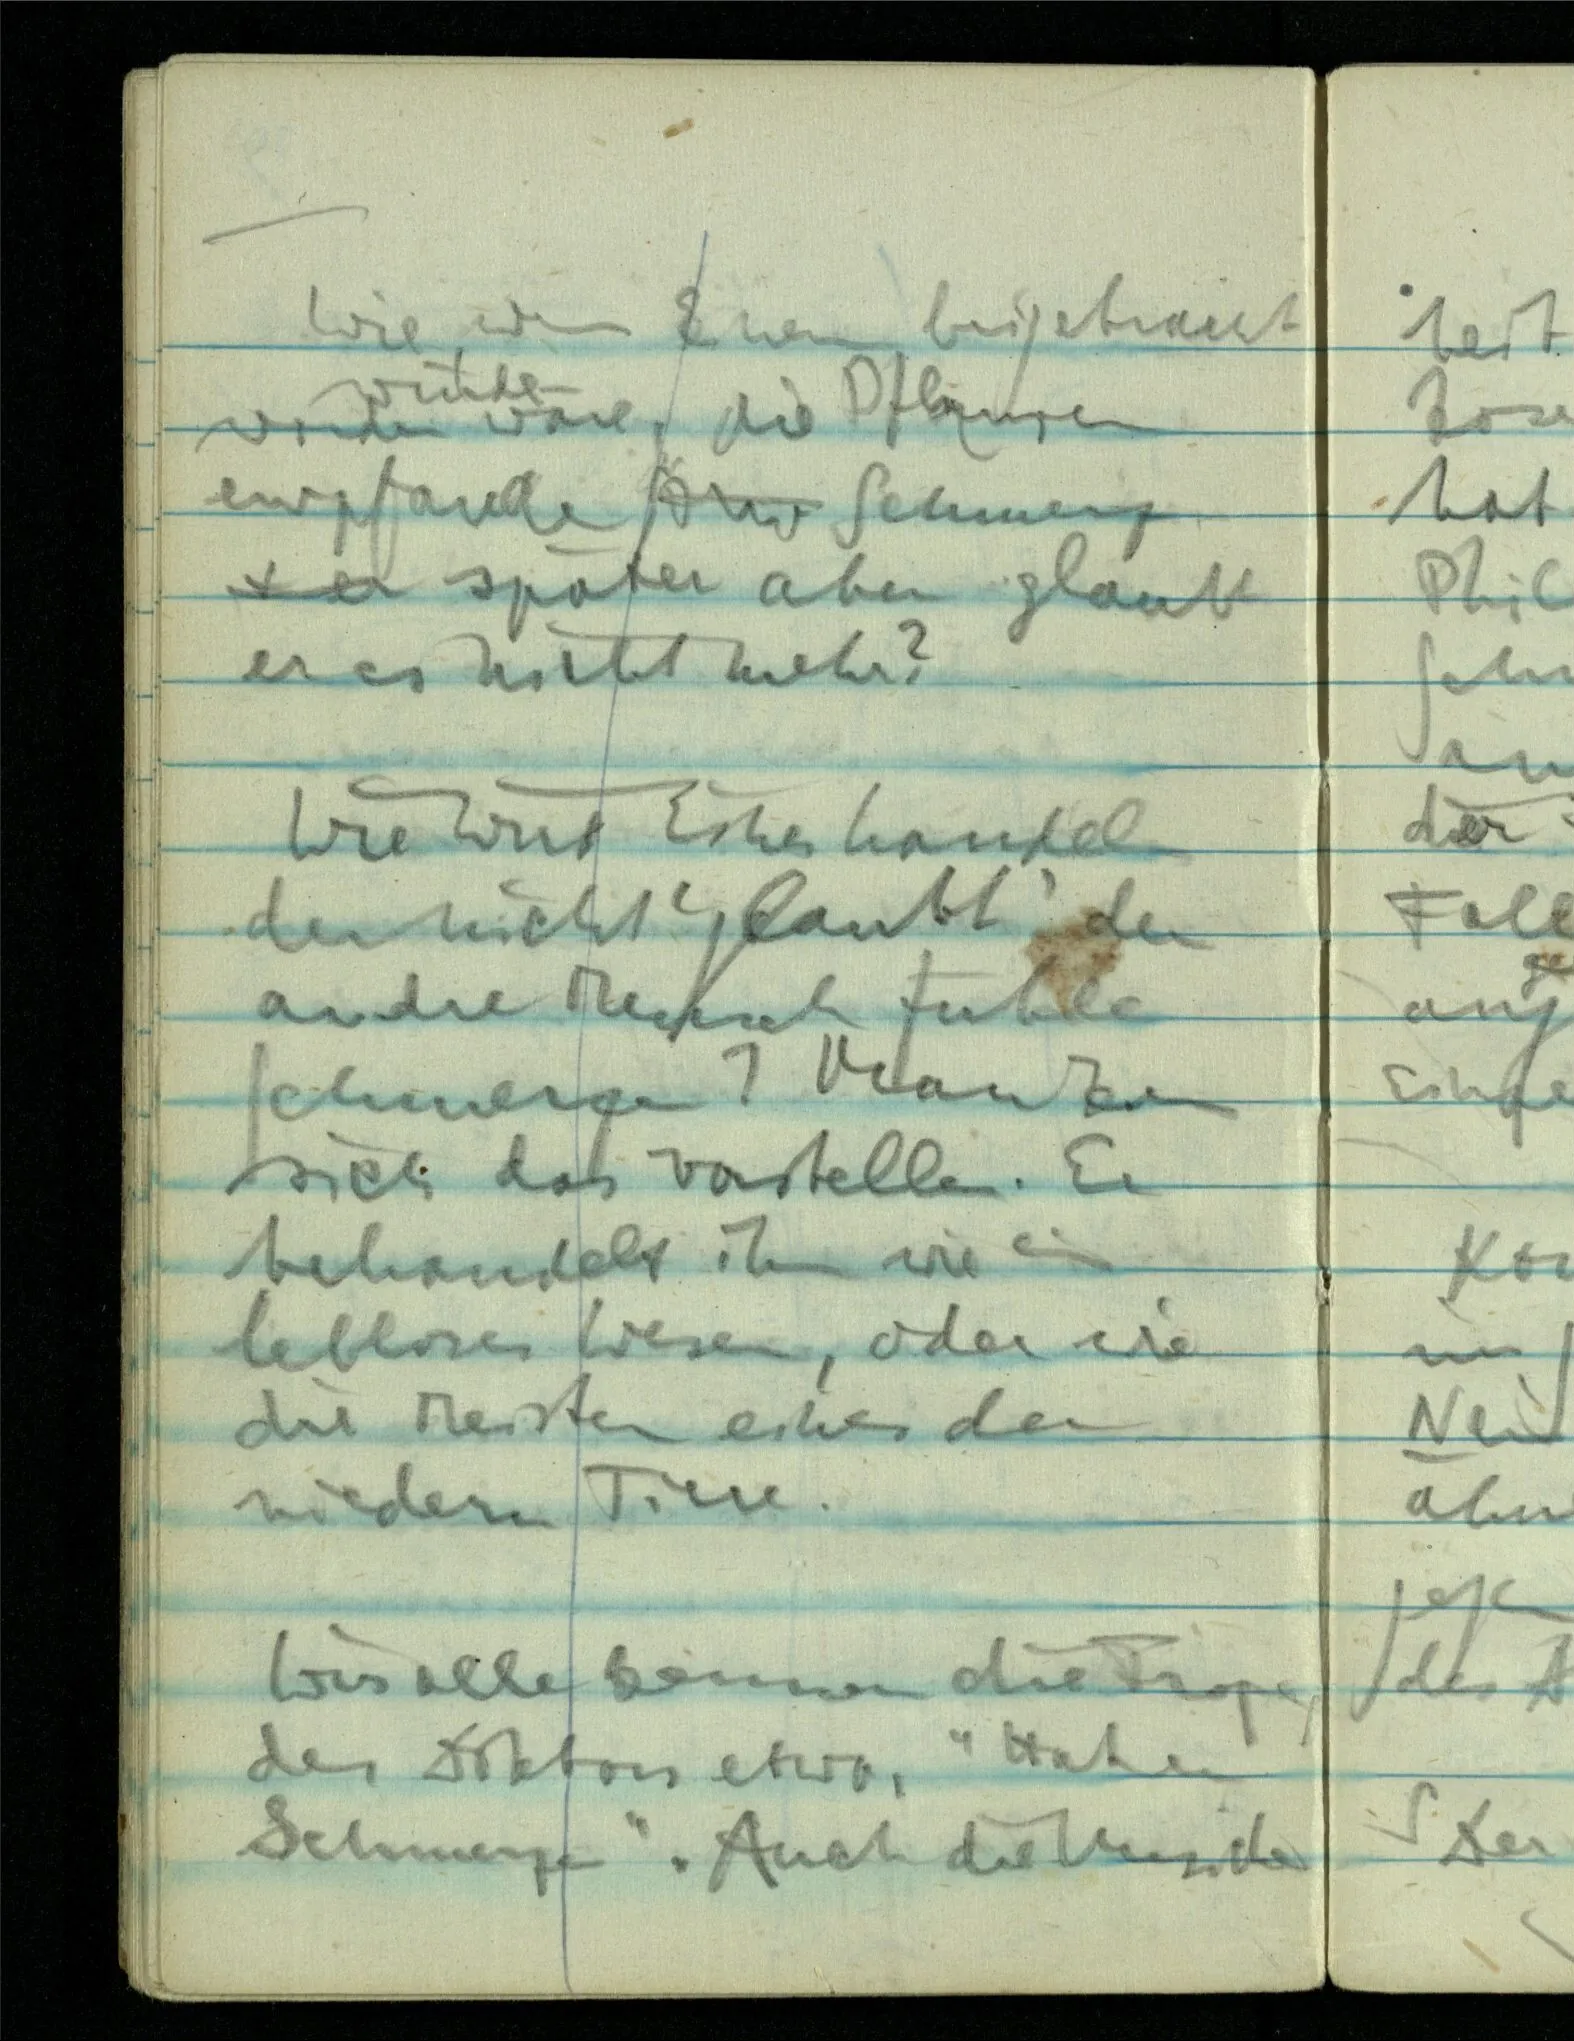 Wie wenn Einem beigebracht
würde
worden wäre, die Pflanzen
empfände Schmerz
+ er später aber glaubt
er es nicht mehr?
Wie wird Einer handeln
der nicht 'glaubt' der
andre Mensch fühle
Schmerzen? Man kann
sich das vorstellen. Er
behandelt ihn wie ein
lebloses Wesen, oder wie
die Meisten eines der
niedern Tiere.
Wir alle kennen die Frage
des Doktors etwa, "Haben
Schmerzen". Auch die
heit
hat
Phil
der
Fall
Nein
des
Der